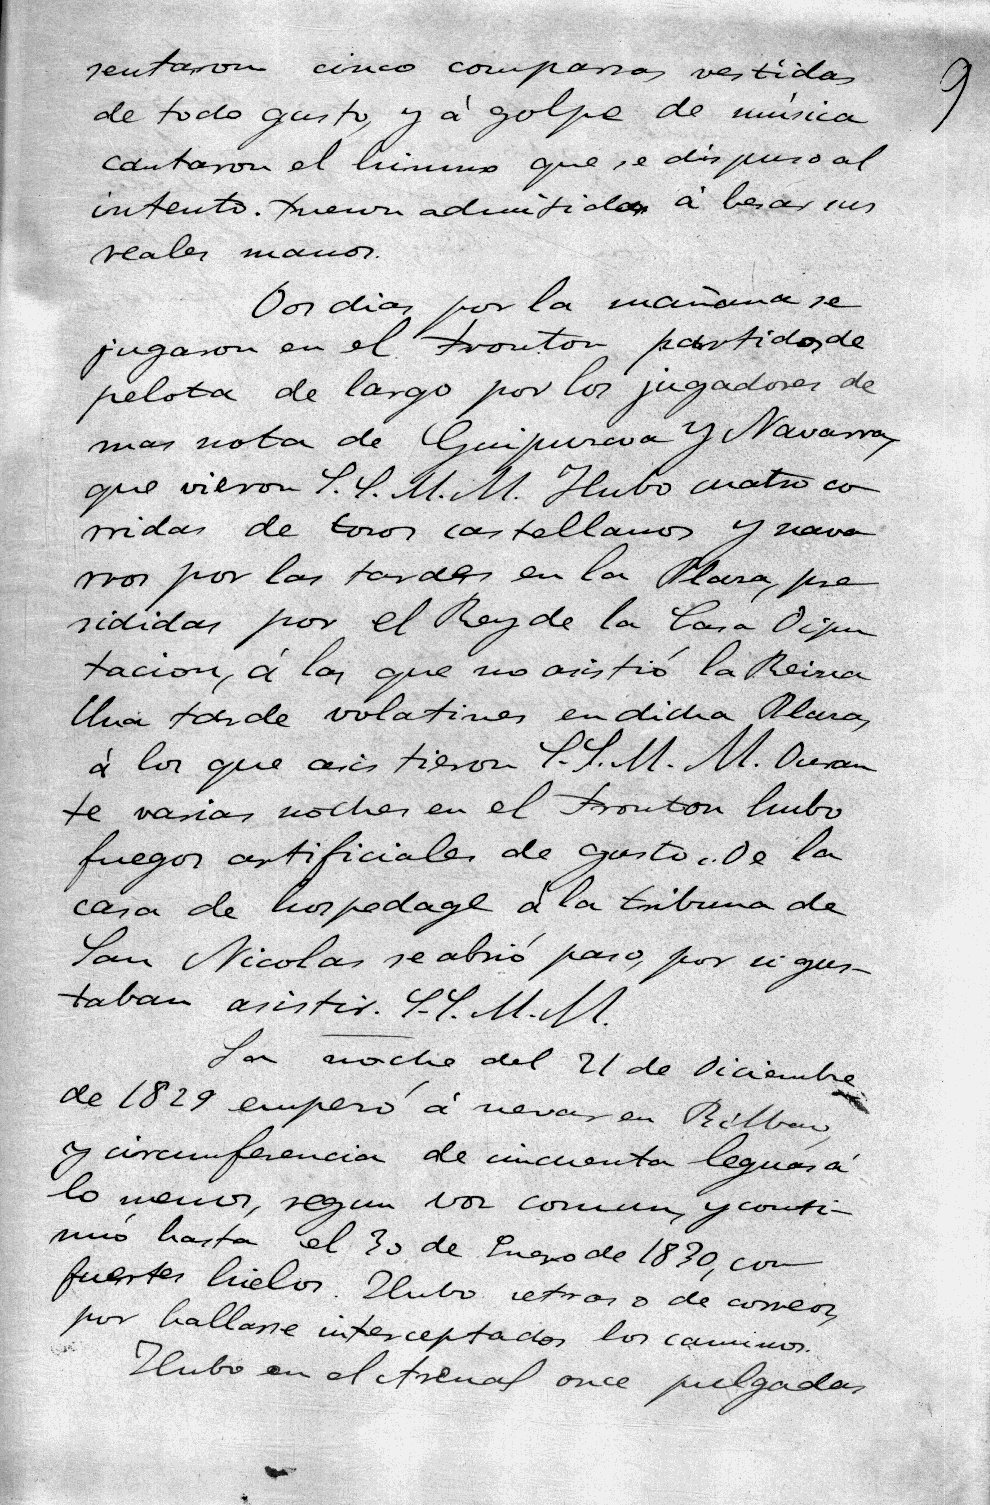 9
sentaron cinco comparsas vestidas
de todo gusto, y á golpe de música
cantaron el himno que se dispuso al
intento. Fueron admitidas á besar sus
reales manos.
Dos dias por la mañana se
jugaron en el Fronton partidos de
pelota de largo por los jugadores de
mas nota de Guipuzcoa y Navarra,
que vieron S.S.M.M. Hubo cuatro co
rridas de toros castellanos y nava
rros por las tardes en la Plaza, pre
sididas por el Rey de la Casa Dipu
tacion, á las que no asistió la Reina
Una tarde volatines en dicha Plaza,
á los que asistieron S.S.M.M. Duran
te varias noches en el Fronton hubo
fuegos artificiales de gusto. De la
casa de hospedage á la tribuna de
San Nicolas se abrió paso, por si gus-
taban asistir. S.S.M.M.
La noche del 21 de Diciembre
de 1829 empezó á nevar en Bilbao,
y circumferencia de cincuenta leguas á
lo menos, segun voz comun, y conti-
nuó hasta el 30 de Enero de 1830, con
fuertes hielos. Hubo retraso de correos,
por hallarse interceptados los caminos.
Hubo en el Arenal once pulgadas